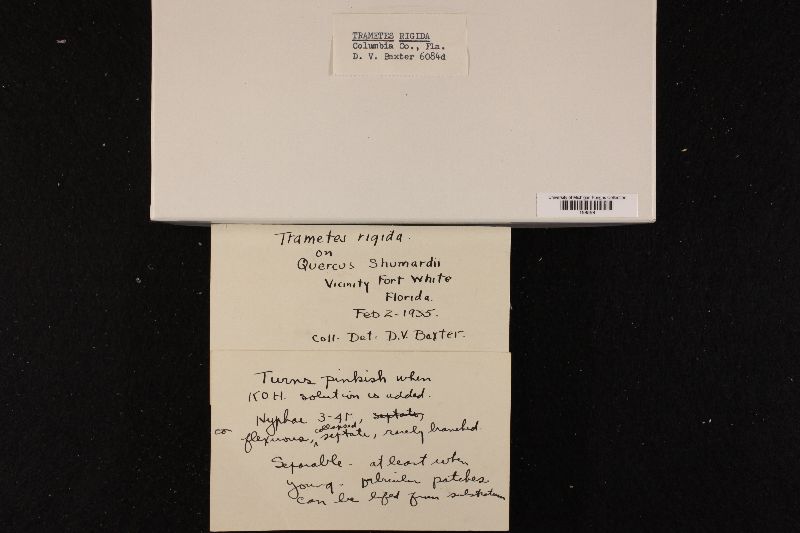 TRAMETES RIGIDA
Columbia Co., Fla.
D. V. Baxter 6084d
University of Michigan Fungus Collection
Trametes rigida.
on
Quercus Shumardii
Vicinity Fort White
Florida.
Feb 2-1935.
Coll. Det. D.V. Baxter.
Turns pinkish when
KOH. solution is added.
Hyphae 3-4µ, septate,
flexuous, collapsed septate, rarely branched.
Separable - at least when
young. Orbicular patches
can be lifted from substratum